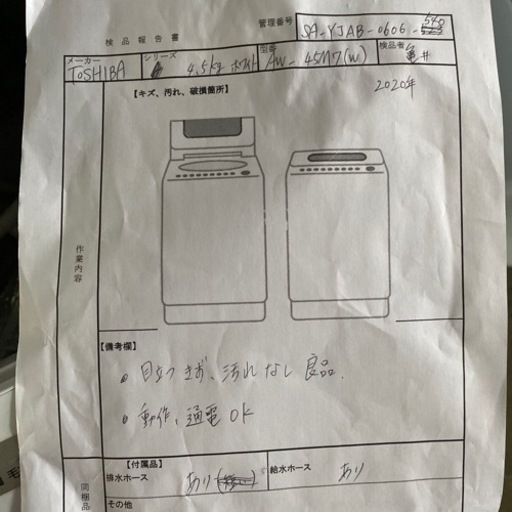 検品報告書
管理番号 SA-YJAB-0606-540
メーカー シリーズ 型番 検品者
TOSHIBA 4.5kg ホワイト AW-45M7(W) 亀井
【キズ、汚れ、破損箇所】
2020年
作業内容
【備考欄】
・目立つきず、汚れなし 良品.
・動作、通電OK
【付属品】
排水ホース あり 給水ホース あり
同梱品
その他
毛